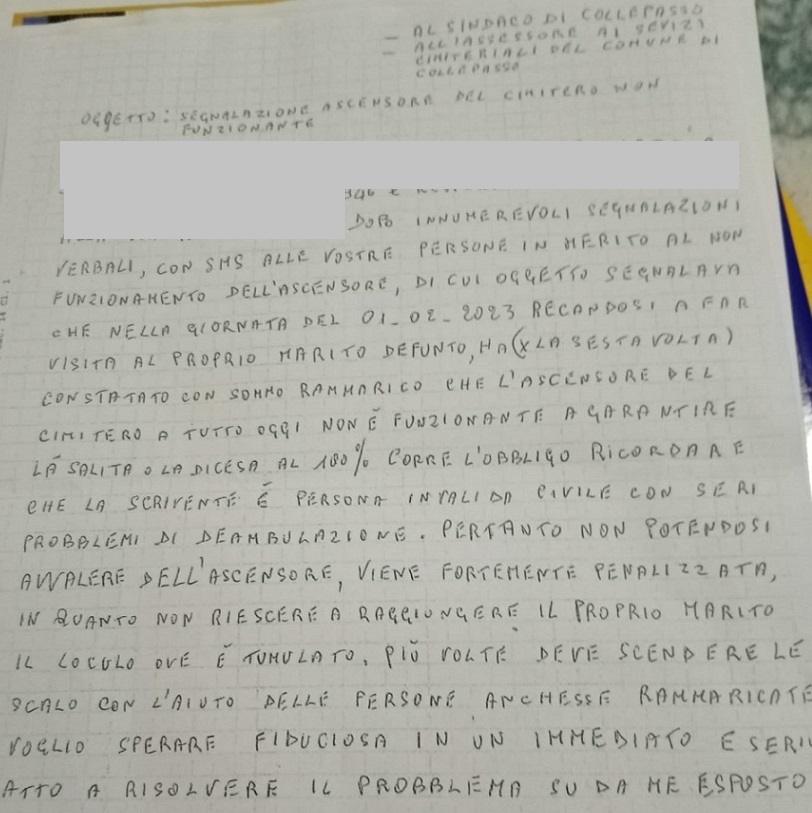 - AL SINDACO DI COLLEPASSO
- ALL'ASSESSORE AI SEVIZI
CIMITERIALI DEL COMUNE DI
COLLEPASSO
OGGETTO: SEGNALAZIONE ASCENSORE DEL CIMITERO NON
FUNZIONANTE
DOPO INNUMEREVOLI SEGNALAZIONI
VERBALI, CON SMS ALLE VOSTRE PERSONE IN MERITO AL NON
FUNZIONAMENTO DELL'ASCENSORE, DI CUI OGGETTO SEGNALAVA
CHE NELLA GIORNATA DEL 01-02-2023 RECANDOSI A FAR
VISITA AL PROPRIO MARITO DEFUNTO, HA (X LA SESTA VOLTA)
CONSTATATO CON SOMMO RAMMARICO CHE L'ASCENSORE DEL
CIMITERO A TUTTO OGGI NON È FUNZIONANTE A GARANTIRE
LA SALITA O LA DICESA AL 100% CORRE L'OBBLIGO RICORDARE
CHE LA SCRIVENTE È PERSONA INVALIDA CIVILE CON SERI
PROBBLEMI DI DEAMBULAZIONE. PERTANTO NON POTENDOSI
AVVALERE DELL'ASCENSORE, VIENE FORTEMENTE PENALIZZATA,
IN QUANTO NON RIESCERE A RAGGIUNGERE IL PROPRIO MARITO
IL LOCULO OVE È TUMULATO. PIÙ VOLTE DEVE SCENDERE LE
SCALO CON L'AIUTO DELLE PERSONE ANCHESSE RAMMARICATE
VOGLIO SPERARE FIDUCIOSA IN UN IMMEDIATO E SERI
ATTO A RISOLVERE IL PROBBLEMA SU DA ME ESPOSTO